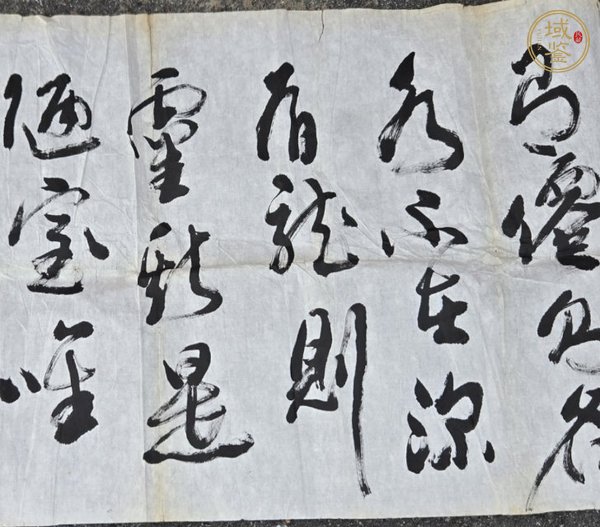 有僊則名
水不在深
有龍則
靈斯是
陋室唯
域鉴